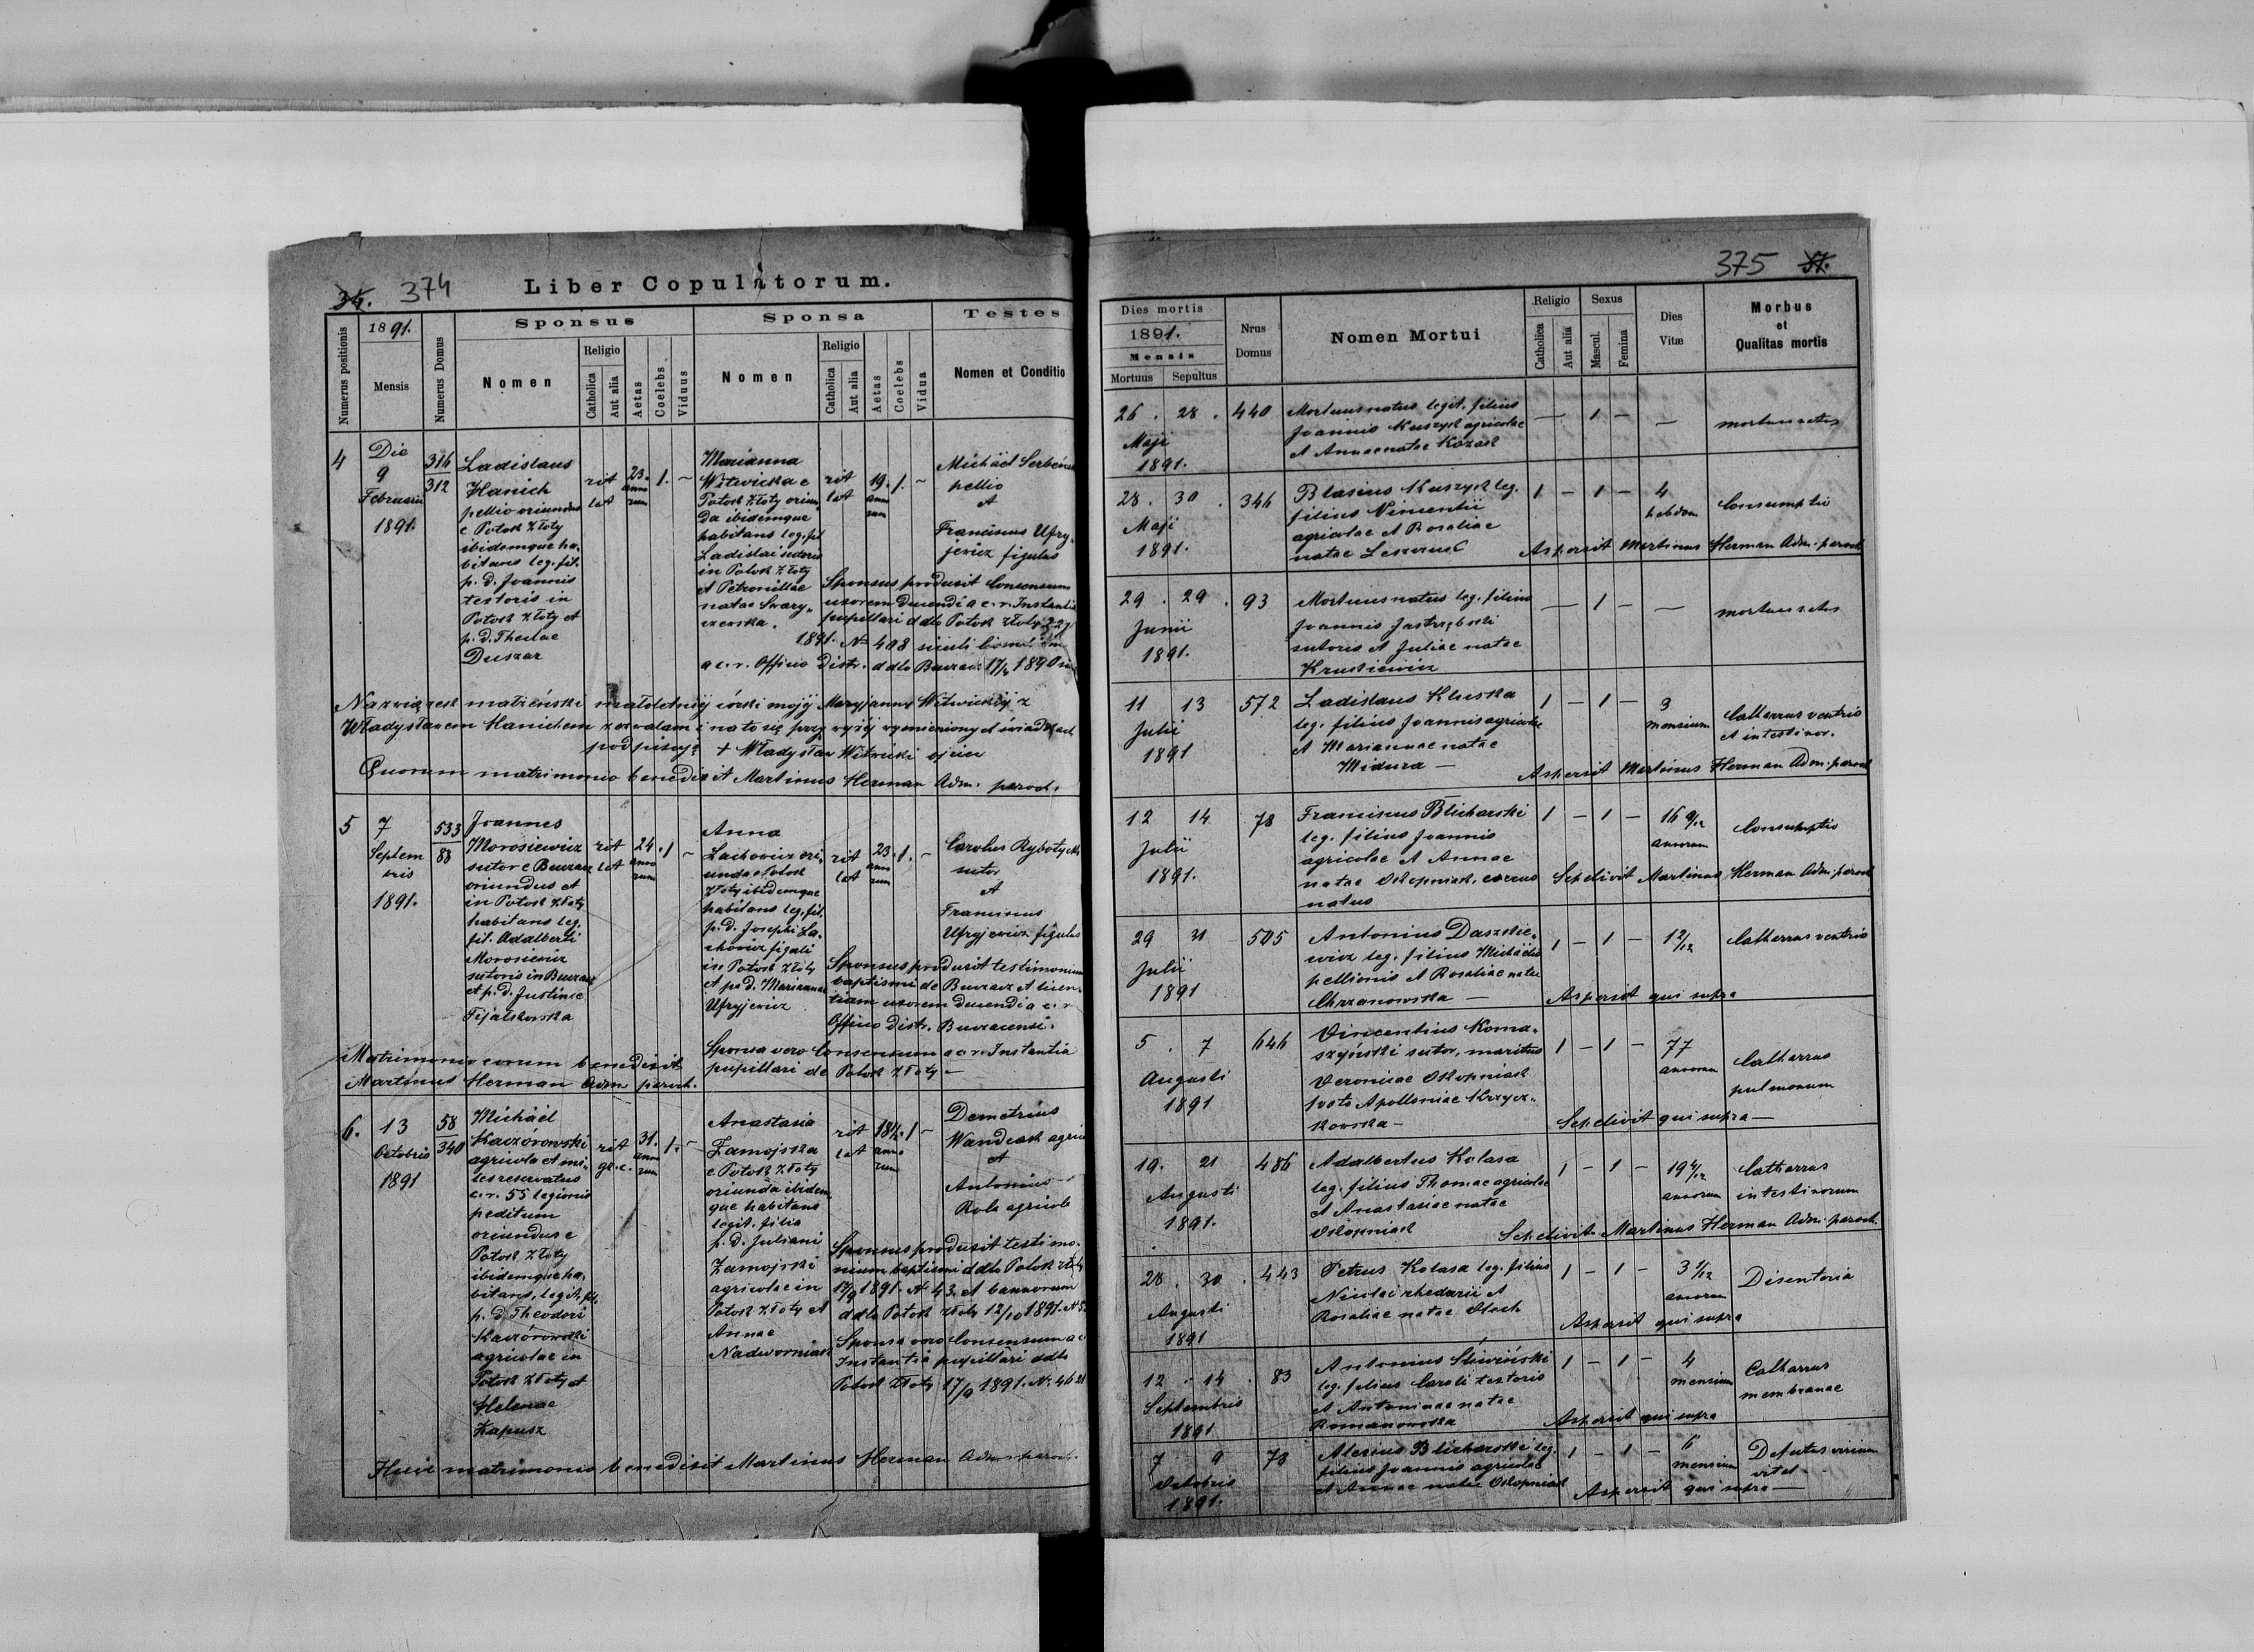 34. 374
Liber Copulatorum.
Numerus positionis
1891.
Mensis
Numerus Domus
Sponsus
Nomen
Religio
Catholica
Aut alia
Aetas
Coelebs
Viduus
Sponsa
Nomen
Religio
Catholica
Aut alia
Aetas
Coelebs
Vidua
Testes
Nomen et Conditio
4
Die
9
Februarii
1891.
316
312
Ladislaus
Hanich
pellio oriundus
e Potok Złoty
ibidemque ha-
bitans leg. fil.
p. d. Joannis
textoris in
Potok Złoty et
p. d. Theclae
Duszar
rit
lat
23.
anno
rum
1. ~
Marianna
Witwicka e
Potok Złoty oriun-
da ibidemque
habitans leg. fil
Ladislai sutoris
in Potok Złoty
et Petronillae
natae Swary-
czewska.
rit
lat
19.
anno
rum
1. ~
Michäel
pellio
et
Franciscus Ufry-
jewicz figulus
Sponsus produxit Consensum
uxorem ducendi a c. r. Instantia
pupillari ddto Potok Złoty
1891. № 408
a c. r. Officio distr. ddto Buczacz 17/ 1890
Na związek małżeński małoletniéj córki mojéj Maryjanny Witwickiéj z
Władysławem Hanichem zezwalam i na to się przy wyżéj wymienionych świadkach
podpisuję + Władysław Witwicki ojciec
Quorum matrimonio benedixit Martinus Herman Adm. paroch.
5
7
Septem
bris
1891.
533
88
Joannes
Morosiewicz
sutor e Buczacz
oriundus et
in Potok Złoty
habitans leg.
fil. Adalberti
Morosiewicz
sutoris in Buczacz
et p. d. Justinae
Fijałkowska
rit
lat
24.
anno
rum
1 ~
Anna
Lachowicz ori-
unda e Potok
Złoty ibidemque
habitans leg. fil.
p. d. Josephi La-
chowicz figuli
in Potok Złoty
et p. d. Mariannae
Ufryjewicz
rit
lat
23.
anno
rum
1. ~
Carolus Rybotycki
sutor
et
Franciscus
Ufryjewicz figulus
Sponsus produxit testimonium
baptismi de Buczacz et licen-
tiam uxorem ducendi a c. r
Officio distr. Buczacensi.
Sponsa vero Consensum a c. r. Instantia
pupillari de Potok Złoty —
Matrimonio eorum benedixit
Martinus Herman Adm. paroch.
6.
13
Octobris
1891
58
340
Michäel
Kaczórowski
agricola et mi-
les reservatus
c. r. 55 legionis
peditum
oriundus e
Potok Złoty
ibidemque ha-
bitans, legit. fil.
p. d. Theodori
Kaczórowski
agricolae in
Potok Złoty et
Helenae
Kapusz
rit
gr. c.
31.
anno
rum
1. ~
Anastasia
Zamojska
e Potok Złoty
oriunda ibidem-
que habitans
legit. filia
p. d. Juliani
Zamojski
agricolae in
Potok Złoty et
Annae
Nadworniak
rit
lat
18½.
anno
rum
1 ~
Demetrius
Wandcak agric
et
Antonius
Rola agricola
Sponsus produxit testimo-
nium baptismi ddto Potok Złoty
17/9 1891. № 43. et bannorum
ddto Potok Złoty 12/10 1891. №
Sponsa vero Consensum a c
Instantia pupillari ddto
Potok Złoty 17/9 1891. № 4621
Huic matrimonio benedixit Martinus Herman Adm. paroch.
375 37.
Dies mortis
1891.
Mensis
Mortuus
Sepultus
Nrus
Domus
Nomen Mortui
Religio
Catholica
Aut alia
Sexus
Mascul.
Femina
Dies
Vitæ
Morbus
et
Qualitas mortis
26. 28.
Maji
1891.
440
Mortuus natus legit. filius
Joannis Kuszyk agricolae
et Annae natae Kozack
— 1 — —
mortuus natus
28. 30.
Maji
1891.
346
Blasius Kuszyk leg.
filius Vincentii
agricolae et Rosaliae
natae
1 — 1 —
4
hebdom
Consumptio
Aspersit Martinus Herman Adm. paroch
29. 29.
Junii
1891.
93
Mortuus natus leg. filius
Joannis Jastrzębski
sutoris et Juliae natae
Kruskiewicz
— 1 — —
mortuus natus
11 13
Julii
1891
572
Ladislaus Kluska
leg. filius Joannis agricolae
et Mariannae natae
Midura —
1 — 1 —
3
mensium
Catharrus ventris
et intestinor.
Aspersit Martinus Herman Adm. paroch
12 14
Julii
1891.
78
Franciscus Blicharski
leg. filius Joannis
agricolae et Annae
natae Oskopniak, coecus
natus
1 — 1 —
16 9/12
annorum
Consumptio
Sepelivit Martinus Herman Adm. paroch
29 31
Julii
1891
505
Antonius Daszkie-
wicz leg. filius Michäelis
pellionis et Rosaliae natae
Chrzanowska —
1 — 1 —
1 2/12
Catharrus ventris
Aspersit qui supra
5. 7
Augusti
1891
646
Vincentius Koma-
szyński sutor, maritus
Veronicae Oskopniak
1voto Apolloniae Krzycz-
kowska —
1 — 1 —
77
annorum
Catharrus
pulmonum
Sepelivit qui supra —
19. 21
Augusti
1891.
486
Adalbertus Kolasa
leg. filius Thomae agricolae
et Anastasiae natae
Oskopniak
1 — 1 —
19 4/12
annorum
Catharrus
intestinorum
Sepelivit Martinus Herman Adm. paroch.
28. 30.
Augusti
1891
443
Petrus Kolasa leg. filius
Nicolai rhedarii et
Rosaliae natae Olach
1 — 1 —
3 1/12
annorum
Disenteria
Aspersit qui supra
12. 14.
Septembris
1891
83
Antonius Śliwiński
leg. filius Caroli textoris
et Antoninae natae
Romanowska
1 — 1 —
4
mensium
Catharrus
membranae
Aspersit qui supra
7. 9
Octobris
1891.
78
Alexius Blicharski leg.
filius Joannis agricolae
et Annae natae Oskopniak
1 — 1 —
6
mensium
Defectus virium
vital
Aspersit qui supra —